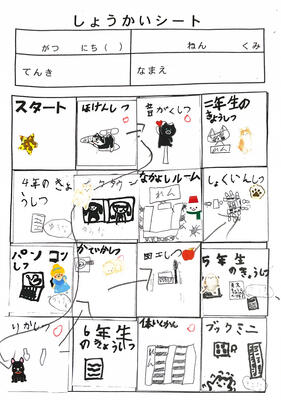 しょうかいシート
がつ にち( )
ねん くみ
てんき
なまえ
スタート
ほけんしつ
音がくしつ
二年生の
きょうしつ
4年のきょ
うしつ
クタウン
なかよしルーム
しょくいんしつ
パソコン
しつ
かていかしつ
図工しつ
5年生
のきょうしつ
りかしつ
6年生
のきょうしつ
体いくかん
ブックミニ